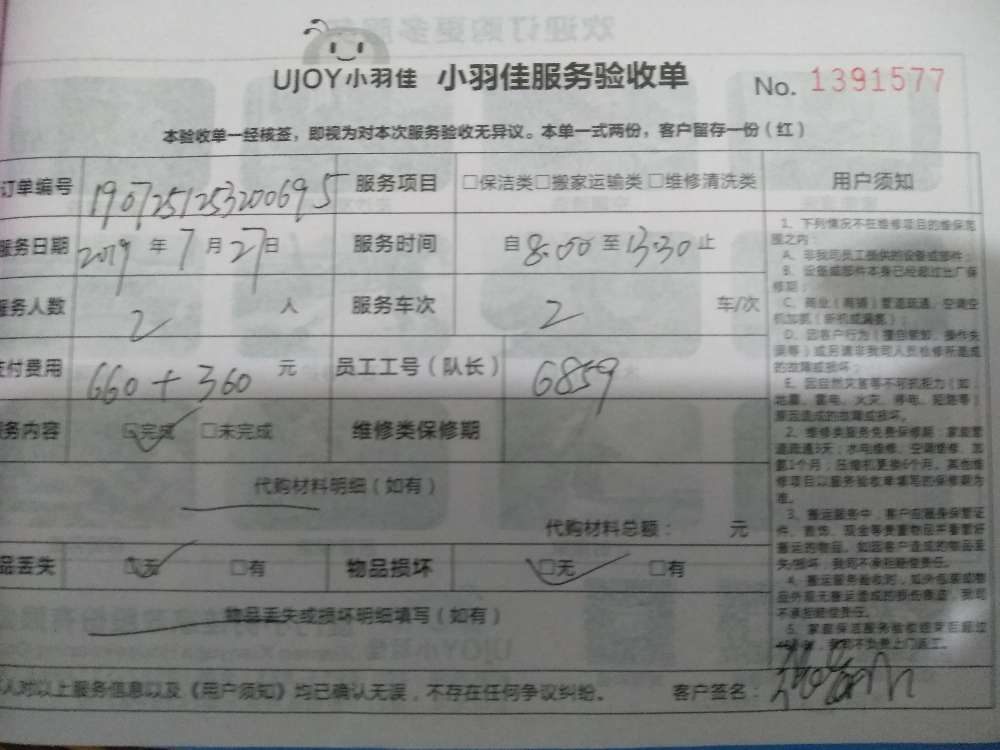 UJOY小羽佳 小羽佳服务验收单 No. 1391577
本验收单一经核签，即视为对本次服务验收无异议。本单一式两份，客户留存一份（红）
订单编号 1907251253200695 服务项目 □保洁类□搬家运输类□维修清洗类 用户须知
服务日期 2019 年 7 月 27 日 服务时间 自 8:00 至 13:30 止
服务人数 2 人 服务车次 2 车/次
付费用 660+360 元 员工工号（队长） 6859
务内容 □完成 □未完成 维修类保修期
代购材料明细（如有）
代购材料总额： 元
品丢失 □无 □有 物品损坏 □无 □有
物品丢失或损坏明细填写（如有）
人对以上服务信息以及《用户须知》均已确认无误，不存在任何争议纠纷。 客户签名：
1、下列情况不在维修项目的维保范
围之内：
A、非我司员工提供的设备或部件；
B、设备或部件本身已经超过出厂保
修期；
C、商业（商铺）管道疏通、空调空
机加氨（新机或满氨）；
D、因客户行为（擅自装卸、操作失
误等）或另请非我司人员检修所造成
的故障或损坏；
E、因自然灾害等不可抗拒力（如：
地震、雷电、火灾、停电、短路等）
原因造成的故障或损坏。
2、维修类服务免费保修期：家庭管
道疏通3天；水电维修、空调维修、加
氨1个月；压缩机更换6个月。其他维
修项目以服务验收单填写的保修期为
准。
3、搬运服务中，客户应随身保管证
件、首饰、现金等贵重物品并看管好
搬运的物品。如因客户造成的物品丢
失/损坏，我司不承担赔偿责任。
4、搬运服务验收时，如外包装或物
品外观无搬运造成的损伤痕迹，我司
不承担赔偿责任。
5、家庭保洁服务验收结束后超过